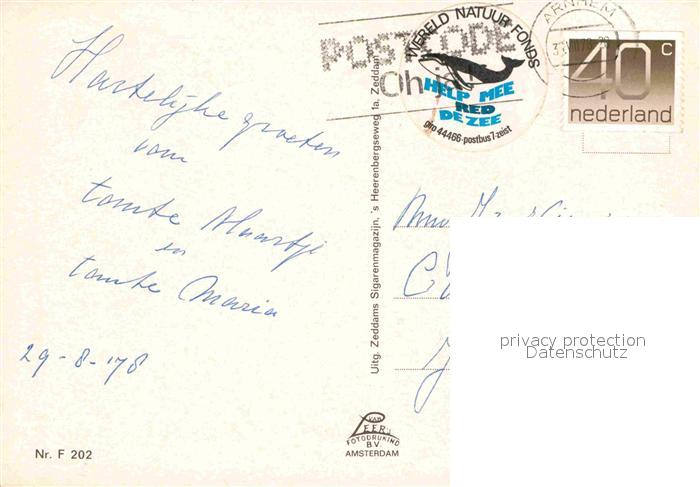 Hartelijke groeten
van
tante Maartje
en
tante Maria
29-8-'78
Nr. F 202
Uitg. Zeddams Sigarenmagazijn, 's Heerenbergseweg 1a, Zeddam
POSTCODE
Oh ja
WERELD NATUUR FONDS
HELP MEE
RED
DE ZEE
giro 44466-postbus 7-zeist
ARNHEM
40 c
nederland
VAN
LEER'S
FOTODRUKIND
B.V.
AMSTERDAM
privacy protection
Datenschutz